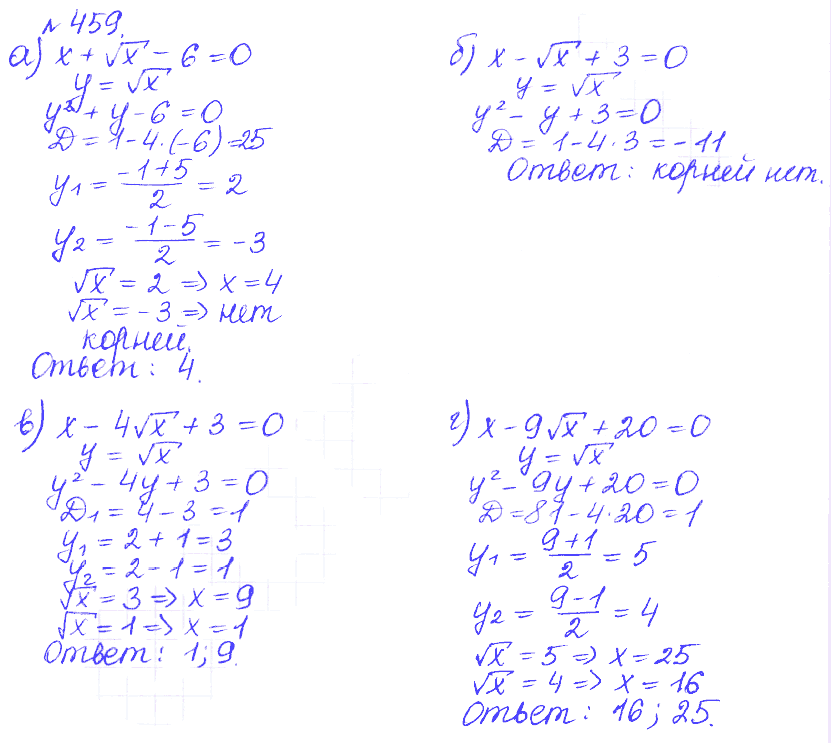 № 459.
а) x + √x − 6 = 0
y = √x
y² + y − 6 = 0
Д = 1 − 4·(−6) = 25
y₁ = (−1+5)/2 = 2
y₂ = (−1−5)/2 = −3
√x = 2 => x = 4
√x = −3 => нет
корней.
Ответ: 4.
б) x − √x + 3 = 0
y = √x
y² − y + 3 = 0
Д = 1 − 4·3 = −11
Ответ: корней нет.
в) x − 4√x + 3 = 0
y = √x
y² − 4y + 3 = 0
Д₁ = 4 − 3 = 1
y₁ = 2 + 1 = 3
y₂ = 2 − 1 = 1
√x = 3 => x = 9
√x = 1 => x = 1
Ответ: 1; 9.
г) x − 9√x + 20 = 0
y = √x
y² − 9y + 20 = 0
Д = 81 − 4·20 = 1
y₁ = (9+1)/2 = 5
y₂ = (9−1)/2 = 4
√x = 5 => x = 25
√x = 4 => x = 16
Ответ: 16; 25.